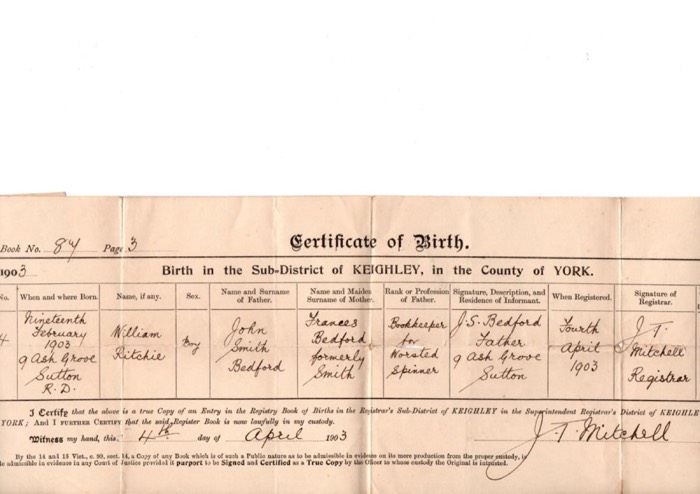 Book No. 84 Page 3
Certificate of Birth.
1903 Birth in the Sub-District of KEIGHLEY, in the County of YORK.
No. When and where Born. Name, if any. Sex. Name and Surname of Father. Name and Maiden Surname of Mother. Rank or Profession of Father. Signature, Description, and Residence of Informant. When Registered. Signature of Registrar.
Nineteenth February 1903 9 Ash Grove Sutton R.D.
William Ritchie
Boy
John Smith Bedford
Frances Bedford formerly Smith
Bookkeeper for Worsted Spinner
J.S. Bedford Father 9 Ash Grove Sutton
Fourth April 1903
J.T. Mitchell Registrar
I Certify that the above is a true Copy of an Entry in the Registry Book of Births in the Registrar's Sub-District of KEIGHLEY in the Superintendent Registrar's District of KEIGHLE
YORK; And I FURTHER CERTIFY that the said Register Book is now lawfully in my custody.
Witness my hand, this 4th day of April 1903 J.T. Mitchell
By the 14 and 15 Vict., c. 99, sect. 14, a Copy of any Book which is of such a Public nature as to be admissible in evidence on its mere production from the proper custody, is
admissible in evidence in any Court of Justice provided it purport to be Signed and Certified as a True Copy by the Officer to whose custody the Original is intrusted.